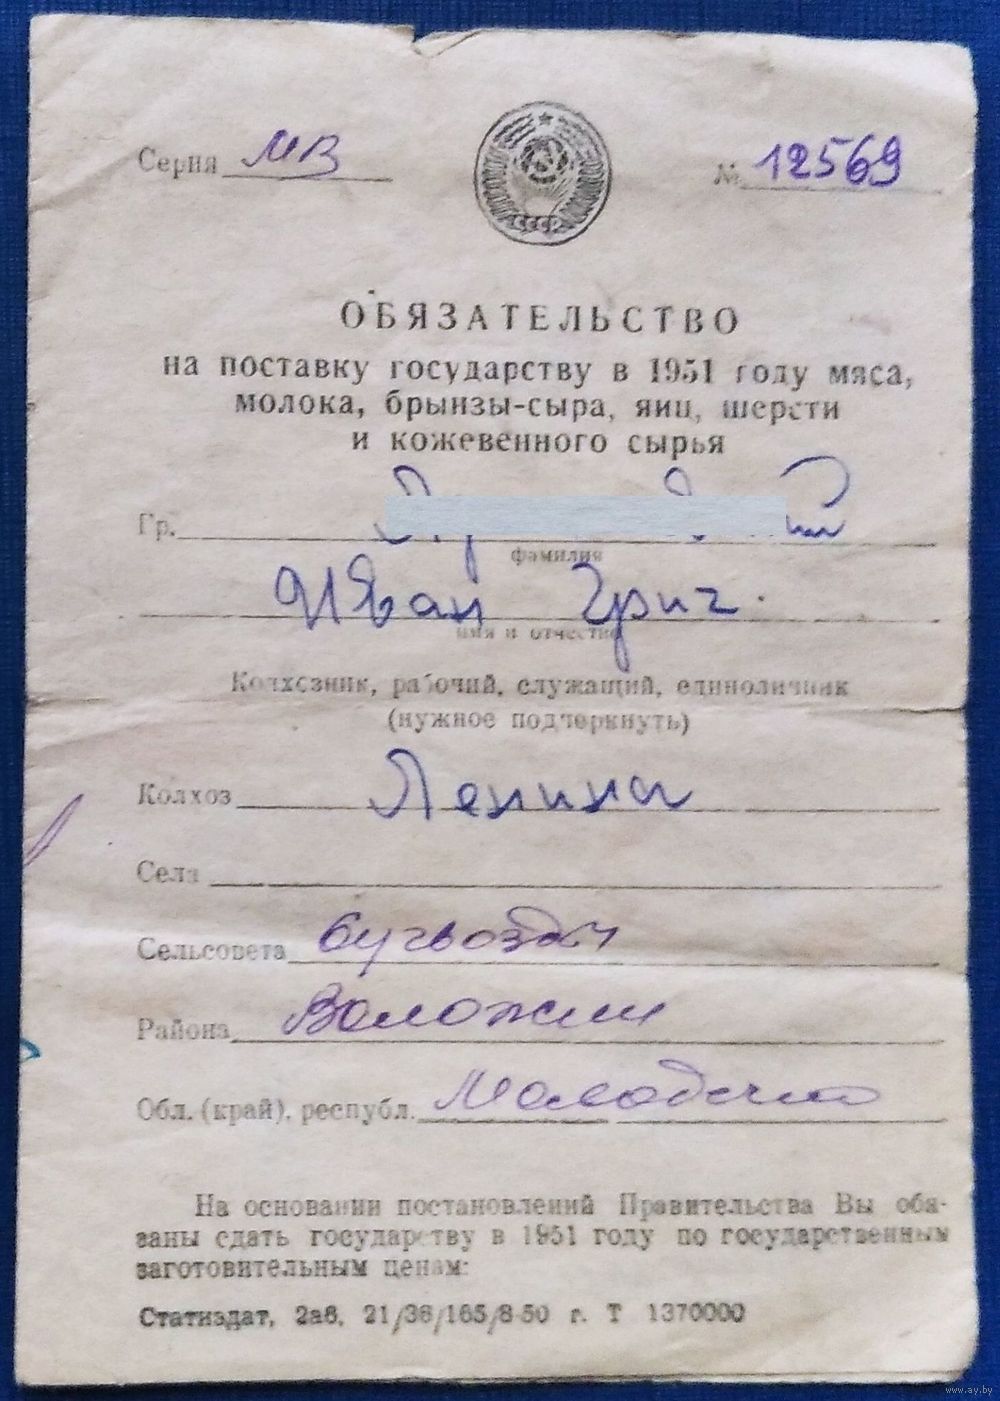 Серия МВ
СССР
№ 12569
ОБЯЗАТЕЛЬСТВО
на поставку государству в 1951 году мяса,
молока, брынзы-сыра, яиц, шерсти
и кожевенного сырья
Гр.
фамилия
Иван Григ.
имя и отчество
Колхозник, рабочий, служащий, единоличник
(нужное подчеркнуть)
Колхоз Ленина
Села
Сельсовета
Района Воложин
Обл. (край), республ. Молодечно
На основании постановлений Правительства Вы обя-
заны сдать государству в 1951 году по государственным
заготовительным ценам:
Статиздат, 2ав. 21/36/165/8-50 г. Т 1370000
www.ay.by